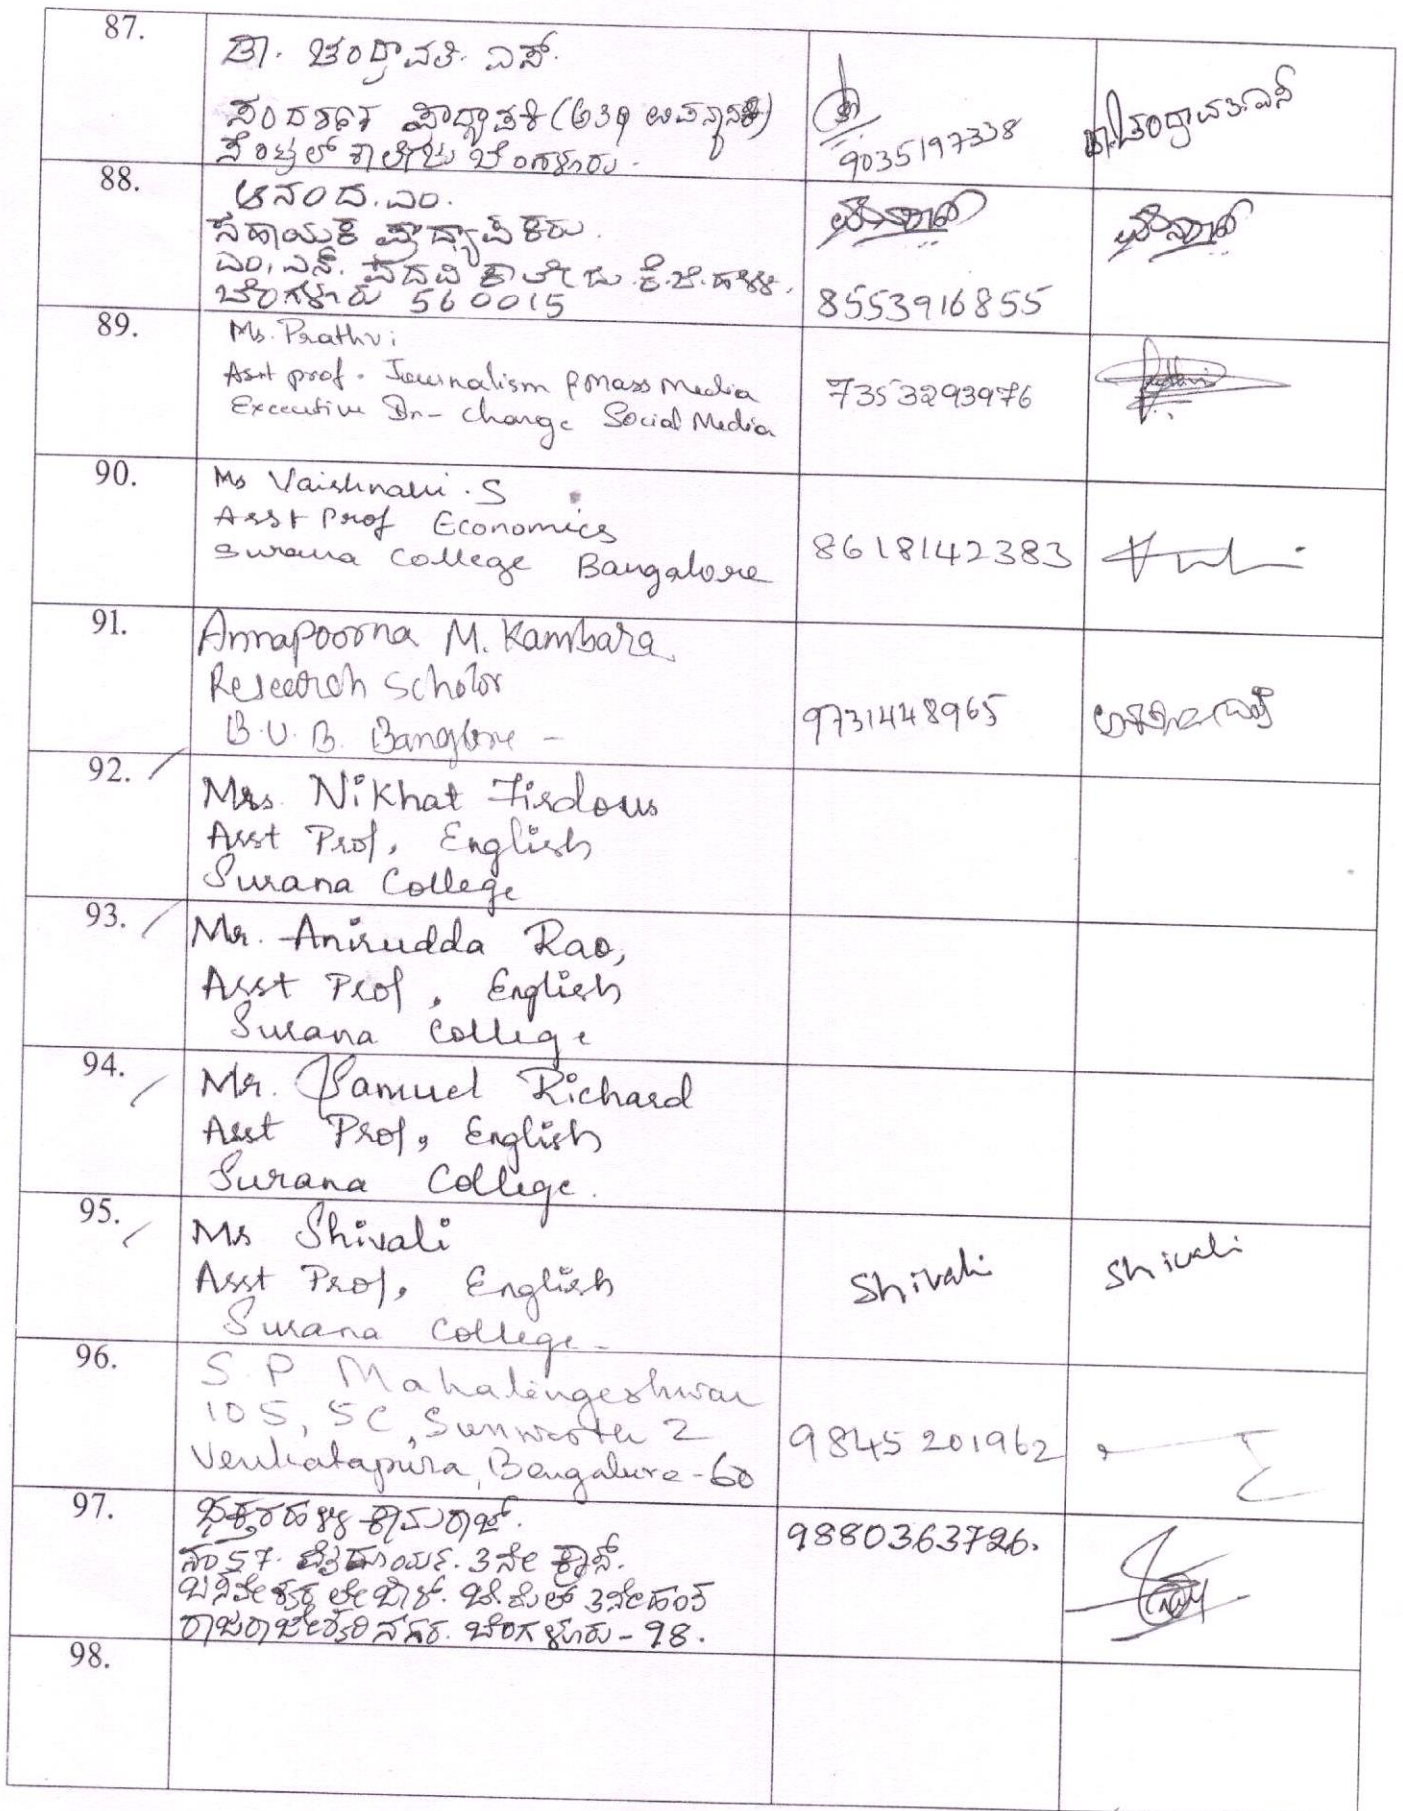 87.
ಡಾ. ಚಂದ್ರಾವತಿ. ಎಸ್.
ಸಂದರ್ಶಕ ಪ್ರಾಧ್ಯಾಪಕಿ (ಅತಿಥಿ ಉಪನ್ಯಾಸಕಿ)
ಸೆಂಟ್ರಲ್ ಕಾಲೇಜು ಬೆಂಗಳೂರು.
9035197338
ಡಾ. ಚಂದ್ರಾವತಿ ಎಸ್
88.
ಆನಂದ. ಎಂ.
ಸಹಾಯಕ ಪ್ರಾಧ್ಯಾಪಕರು.
ಎಂ, ಎನ್. ಪದವಿ ಕಾಲೇಜು. ಕೆ.ಜಿ.ಹಳ್ಳಿ.
ಬೆಂಗಳೂರು 560015
8553916855
89.
Ms. Prathvi
Asst prof. Journalism & Mass Media
Executive Dr- Change Social Media
7353293976
90.
Ms Vaishnavi . S
Asst Prof Economics
Surana College Bangalore
8618142383
91.
Annapoorna M. Kambara
Research Scholor
B.U.B. Banglore -
9731448965
92.
Mrs. Nikhat Firdous
Asst Prof, English
Surana College
93.
Mr. Anirudda Rao,
Asst Prof, English
Surana College
94.
Mr. Samuel Richard
Asst Prof, English
Surana College.
95.
Ms Shivali
Asst Prof, English
Surana College-
Shivali
Shivali
96.
S. P Mahalingeshwar
105, 5C, Sunworth 2
Venkatapura, Bengalure-60
9845 201962
97.
ಭಕ್ತರಹಳ್ಳಿ ಕಾಮರಾಜ್.
ನಂ 57. 3ನೇ ಕ್ರಾಸ್.
ಬಸವೇಶ್ವರ ಲೇಔಟ್. 3ನೇ ಹಂತ
ರಾಜರಾಜೇಶ್ವರಿ ನಗರ. ಬೆಂಗಳೂರು - 98.
9880363726.
98.